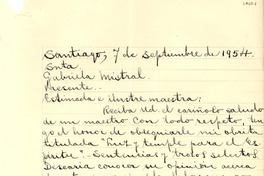 Santiago, 7 de Septiembre de 1954.
Srta.
Gabriela Mistral.
Presente.
Estimada e ilustre maestra:
Reciba Ud. el cariñoso saludo
de un maestro. Con todo respeto, ten-
go el honor de obsequiarle mi obrita
titulada "Luz y temple para el Es-
píritu". Sentencias y trozos selectos
Desearía conocer su opinión acerca